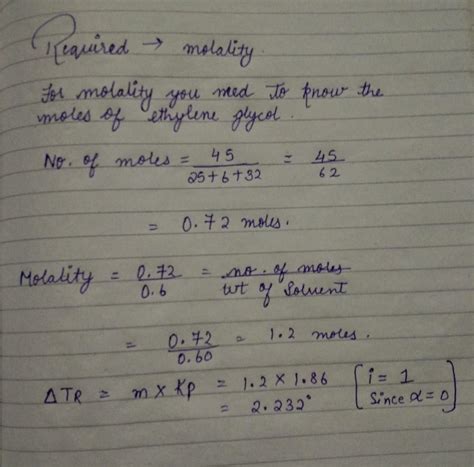 Required → molality.
For molality you need to know the
moles of ethylene glycol.
No. of moles = 45/25+6+32 = 45/62
= 0.72 moles.
Molality = 0.72/0.6 = no. of moles/wt of solvent
= 0.72/0.60 = 1.2 moles.
ΔTR = m × Kp = 1.2 × 1.86 [i = 1
= 2.232° Since α = 0]